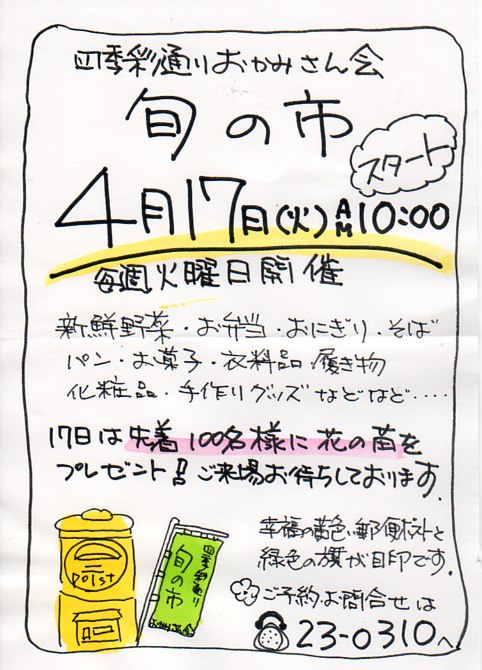 四季彩通りおかみさん会
旬の市
スタート
4月17日(火)AM10:00
毎週火曜日開催
新鮮野菜・お弁当・おにぎり・そば
パン・お菓子・衣料品・履き物
化粧品・手作りグッズなどなど・・・・
17日は先着100名様に花の苗を
プレゼント!!ご来場お待ちしております。
幸福の黄色い郵便ポストと
緑色の旗が目印です。
ご予約お問合せは
23-0310へ
Po1st
四季彩通り
旬の市
おかみさん会